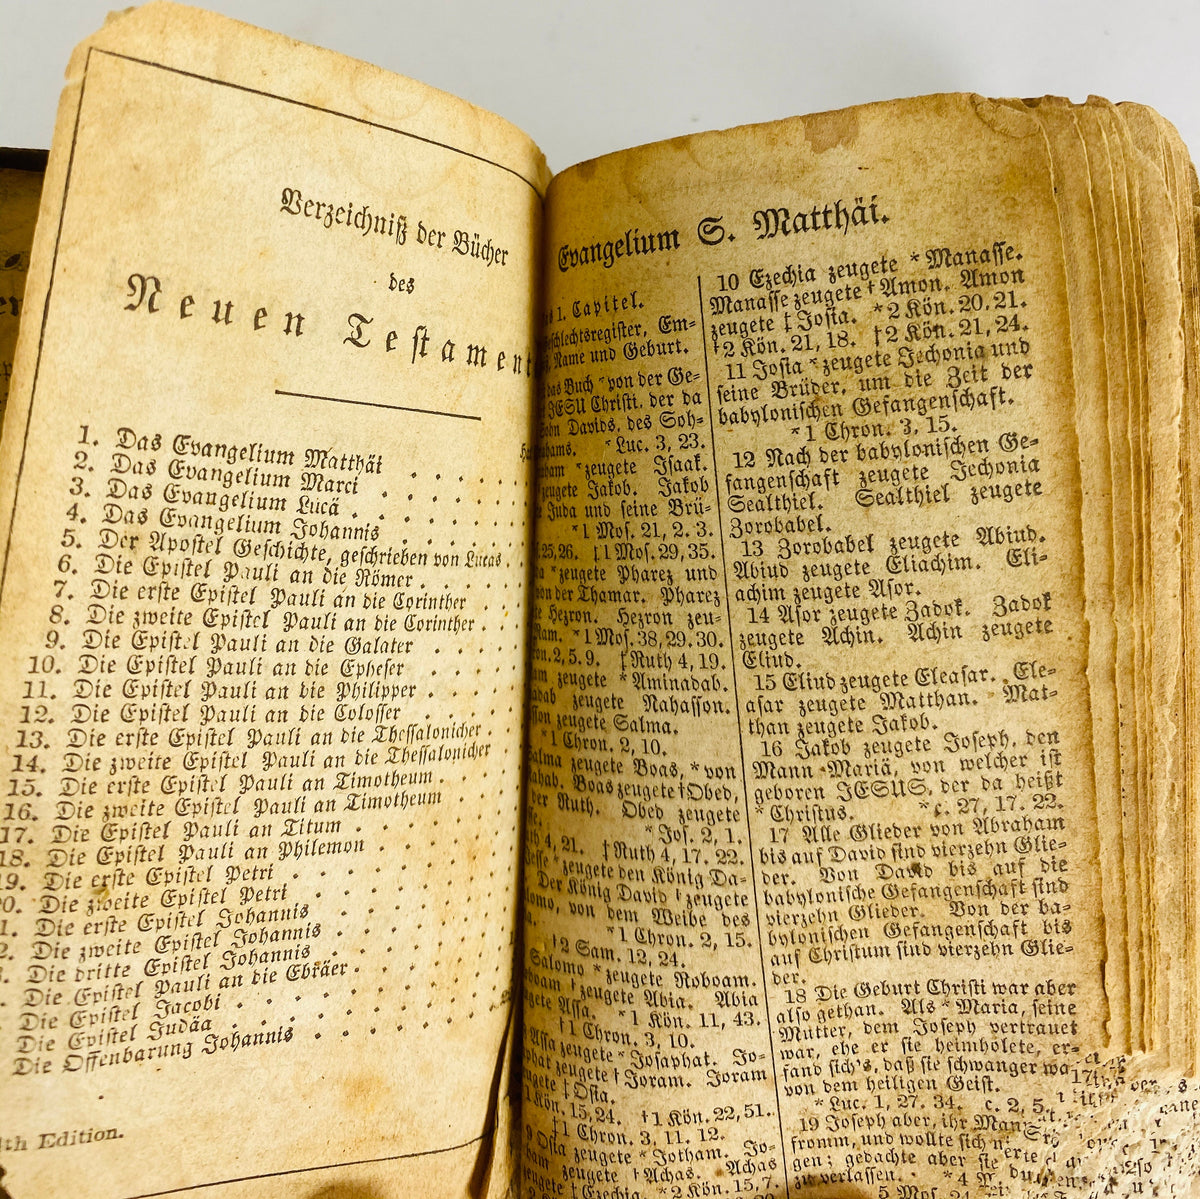 Verzeichniß der Bücher
des
Neuen Testament
1. Das Evangelium Matthäi
2. Das Evangelium Marci
3. Das Evangelium Lucä
4. Das Evangelium Johannis
5. Der Apostel Geschichte, geschrieben von Lucas
6. Die Epistel Pauli an die Römer
7. Die erste Epistel Pauli an die Corinther
8. Die zweite Epistel Pauli an die Corinther
9. Die Epistel Pauli an die Galater
10. Die Epistel Pauli an die Epheser
11. Die Epistel Pauli an die Philipper
12. Die Epistel Pauli an die Colosser
13. Die erste Epistel Pauli an die Thessalonicher
14. Die zweite Epistel Pauli an die Thessalonicher
15. Die erste Epistel Pauli an Timotheum
16. Die zweite Epistel Pauli an Timotheum
17. Die Epistel Pauli an Titum
18. Die Epistel Pauli an Philemon
19. Die erste Epistel Petri
20. Die zweite Epistel Petri
1. Die erste Epistel Johannis
2. Die zweite Epistel Johannis
Die dritte Epistel Johannis
Die Epistel Pauli an die Ebräer
Die Epistel Jacobi
Die Epistel Judäa
Die Offenbarung Johannis
th Edition.
Evangelium S. Matthäi.
1. Capitel.
schlechtsregister, Em-
Name und Geburt.
das Buch * von der Ge-
JESU Christi, der da
Sohn Davids, des Soh-
hams. * Luc. 3, 23.
ham * zeugete Isaak.
zeugete Jakob. Jakob
te Juda und seine Brü-
* 1 Mos. 21, 2. 3.
25, 26. ‡ 1 Mos. 29, 35.
da * zeugete Pharez und
von der Thamar. Pharez
te Hezron. Hezron zeu-
Ram. * 1 Mos. 38, 29. 30.
ron. 2, 5. 9. ‡ Ruth 4, 19.
am zeugete * Aminadab.
adab zeugete Nahasson.
sson zeugete Salma.
* 1 Chron. 2, 10.
alma zeugete Boas, * von
ahab. Boas zeugete † Obed,
der Ruth. Obed zeugete
* Jos. 2, 1.
th 4, 21. ‡ Ruth 4, 17. 22.
Jesse * zeugete den König Da-
Der König David † zeugete
lomo, von dem Weibe des
* 1 Chron. 2, 15.
† 2 Sam. 12, 24.
Salomo * zeugete Roboam.
boam † zeugete Abia. Abia
gete Assa. * 1 Kön. 11, 43.
† 1 Chron. 3, 10.
Assa zeugete * Josaphat. Jo-
phat zeugete † Joram. Joram
zeugete ‡ Osia.
1 Kön. 15, 24. † 1 Kön. 22, 51.
‡ 1 Chron. 3, 11. 12.
9 Osia zeugete * Jotham. Jo-
ham zeugete † Achas. Achas
zeugete ‡ Ezechia. * 2 Kön. 15, 7.
10 Ezechia zeugete * Manasse.
Manasse zeugete † Amon. Amon
zeugete ‡ Josia. * 2 Kön. 20, 21.
† 2 Kön. 21, 18. ‡ 2 Kön. 21, 24.
11 Josia * zeugete Jechonia und
seine Brüder, um die Zeit der
babylonischen Gefangenschaft.
* 1 Chron. 3, 15.
12 Nach der babylonischen Ge-
fangenschaft zeugete Jechonia
Sealthiel. Sealthiel zeugete
Zorobabel.
13 Zorobabel zeugete Abiud.
Abiud zeugete Eliachim. Eli-
achim zeugete Asor.
14 Asor zeugete Zadok. Zadok
zeugete Achin. Achin zeugete
Eliud.
15 Eliud zeugete Eleasar. Ele-
asar zeugete Matthan. Mat-
than zeugete Jakob.
16 Jakob zeugete Joseph, den
Mann Mariä, von welcher ist
geboren JESUS, der da heißt
* Christus. * c. 27, 17. 22.
17 Alle Glieder von Abraham
bis auf David sind vierzehn Glie-
der. Von David bis auf die
babylonische Gefangenschaft sind
vierzehn Glieder. Von der ba-
bylonischen Gefangenschaft bis
auf Christum sind vierzehn Glie-
der.
18 Die Geburt Christi war aber
also gethan. Als * Maria, seine
Mutter, dem Joseph vertrauet
war, ehe er sie heimholete, er-
fand sich's, daß sie schwanger wa
von dem heiligen Geist.
* Luc. 1, 27. 34. c. 2, 5.
19 Joseph aber, ihr Man
fromm, und wollte sich n
gen; gedachte aber sie
zu verlassen. * 4 M
5 Mos. 24